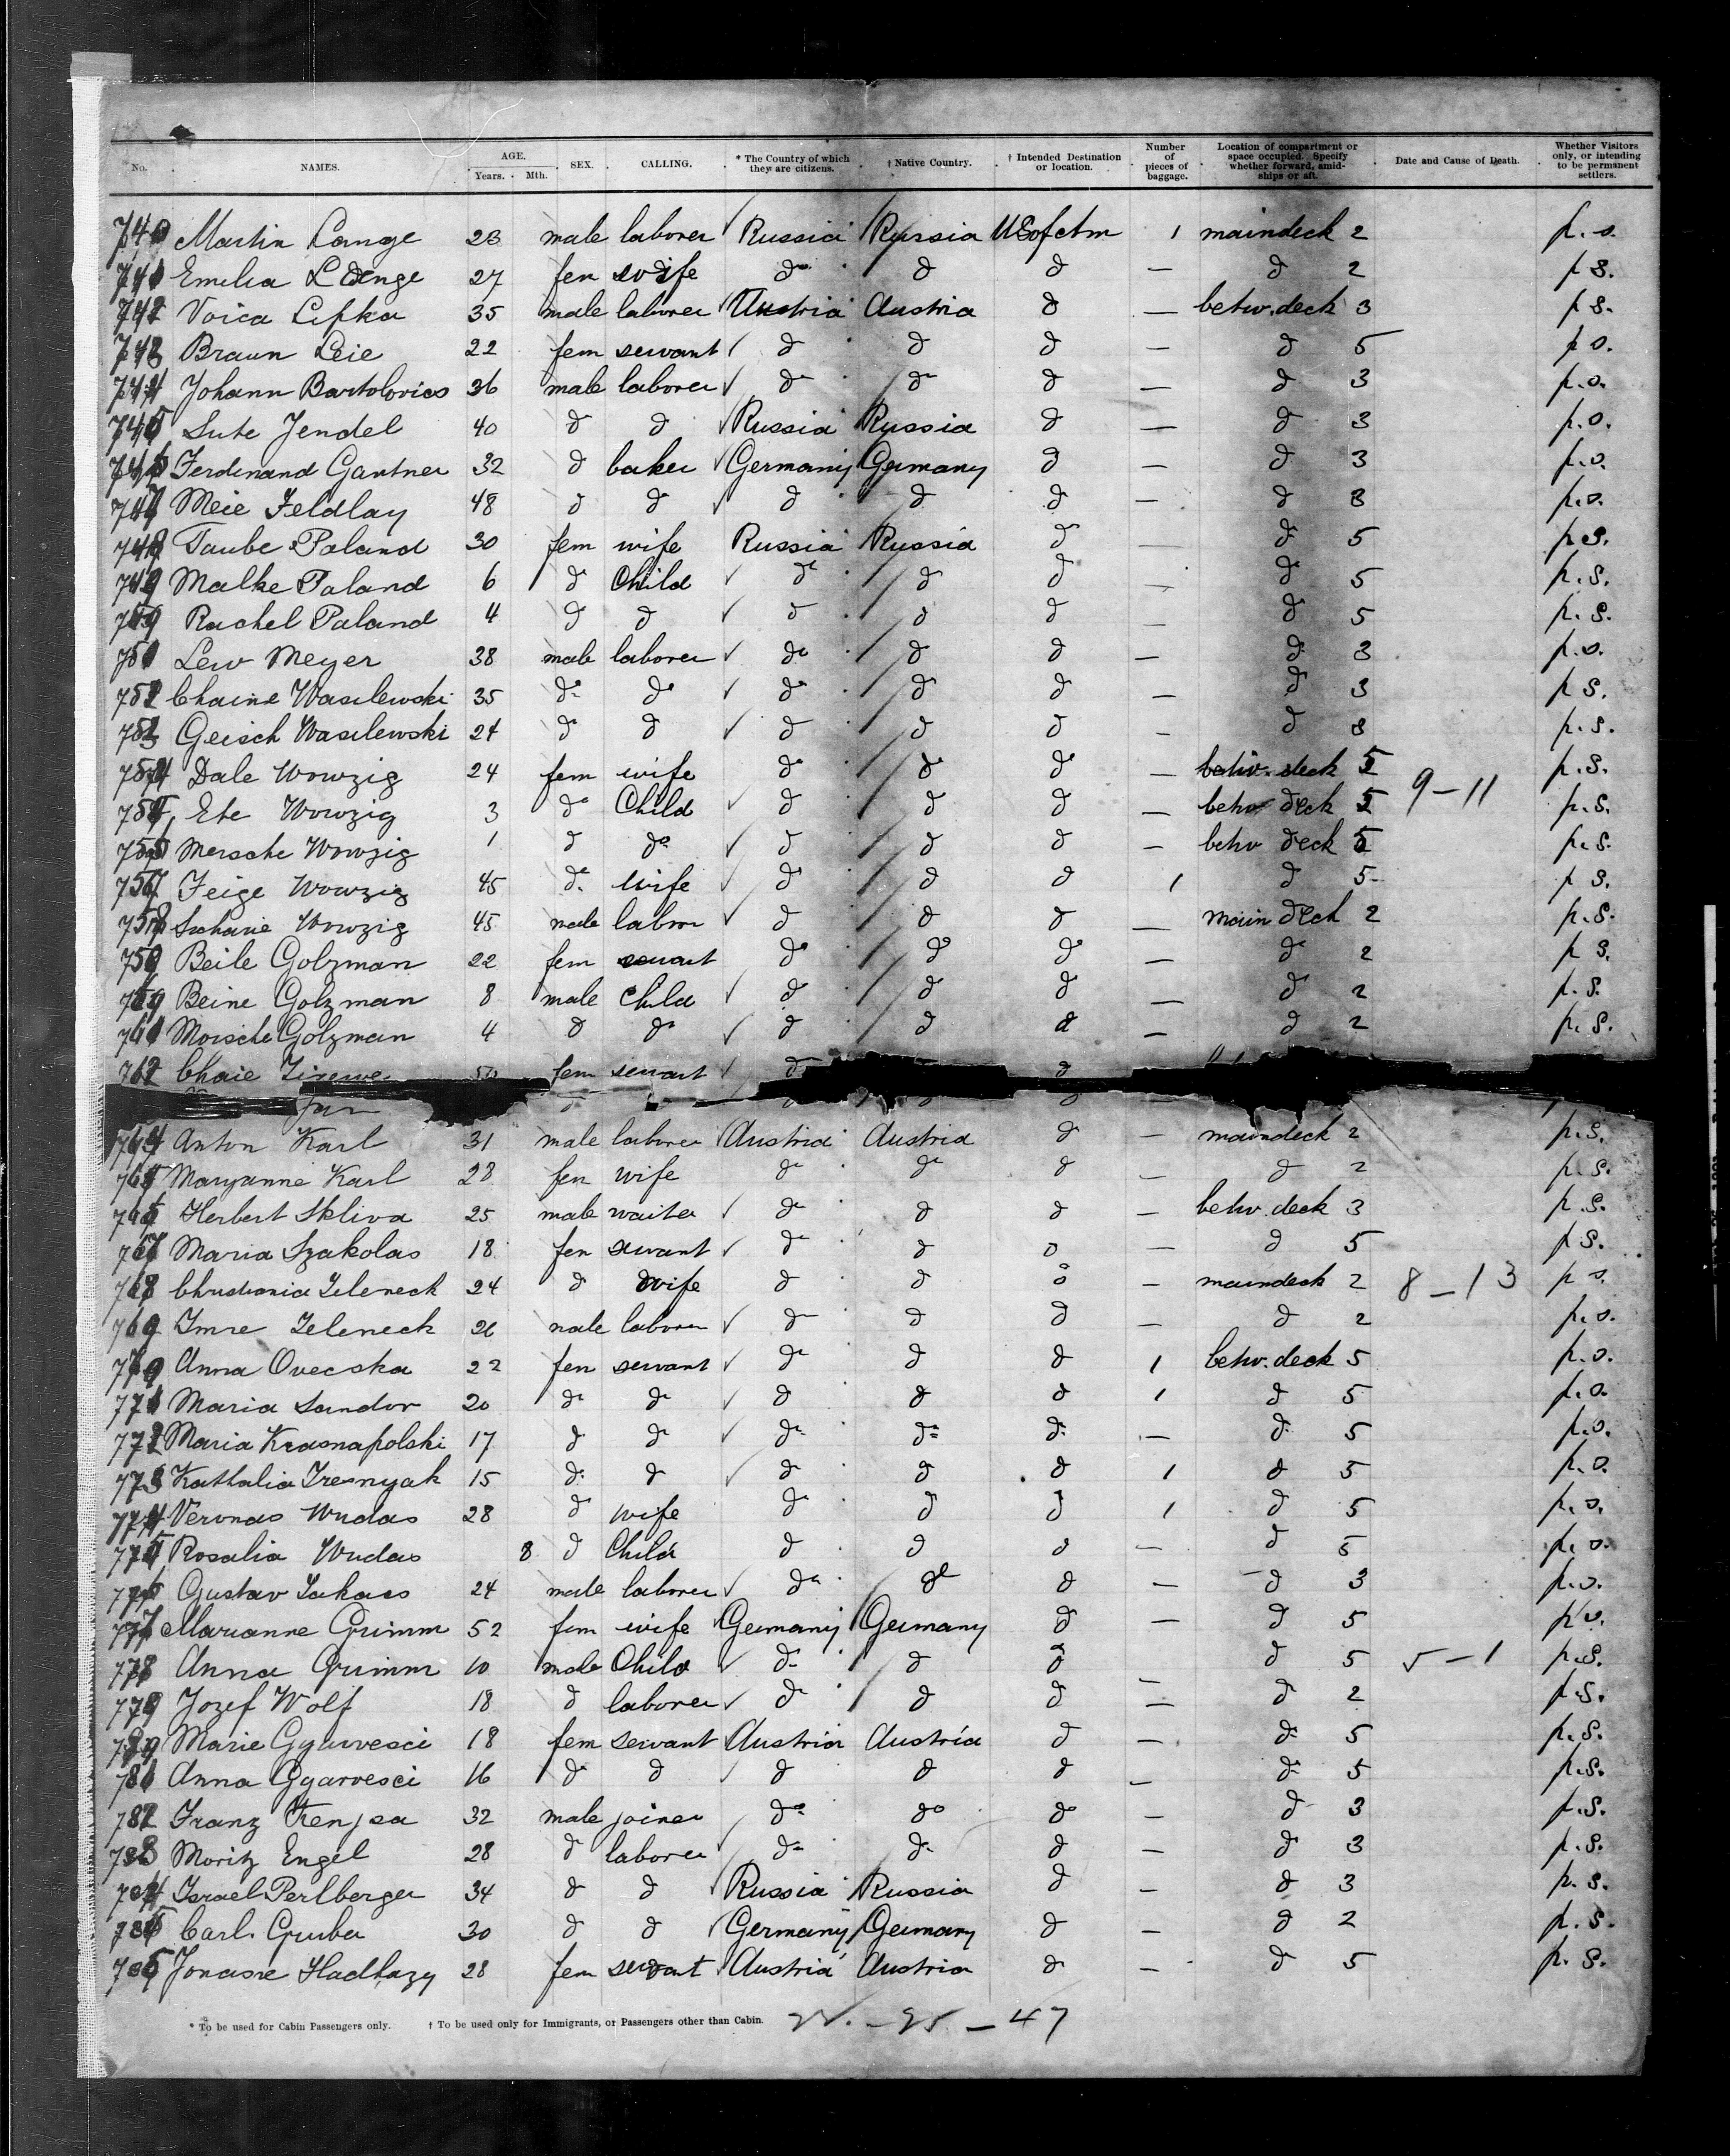 No. NAMES. AGE. Years. Mth. SEX. CALLING. * The Country of which they are citizens. † Native Country. † Intended Destination or location. Number of pieces of baggage. Location of compartment or space occupied. Specify whether forward, amidships or aft. Date and Cause of Death. Whether Visitors only, or intending to be permanent settlers.
740 Martin Lange 28 male laborer Russia Russia US of Am 1 maindeck 2 p. s.
741 Emilia Lange 27 fem wife do d d — d 2 p s.
742 Voica Lipka 35 male laborer Austria Austria d — betw. deck 3 p s.
743 Braun Leie 22 fem servant d d d — d 5 p s.
744 Johann Bartolovics 36 male laborer d d d — d 3 p. s.
745 Sute Jendel 40 d d Russia Russia d — d 3 p. s.
746 Ferdinand Gantner 32 d baker Germany Germany d — d 3 p. s.
747 Meie Feldlay 48 d d d d d — d 3 p. s.
748 Taube Paland 30 fem wife Russia Russia d — d 5 p s.
749 Malke Paland 6 d Child d d d — d 5 p. s.
Rachel Paland 4 d d d d d — d 5 p. s.
751 Lew Meyer 38 male laborer do d d — d 3 p. s.
752 Chaine Wasilewski 35 do do do d d — d 3 p s.
753 Geisch Wasilewski 24 d d d d d — d 3 p. s.
754 Dale Wowzig 24 fem wife do do do — betw. deck 5 9 – 11 p. s.
755 Ete Wowzig 3 do Child d d d — betw deck 5 p. s.
756 Mersche Wowzig 1 d do d d d — betw deck 5 p. s.
757 Feige Wowzig 45 do wife d d d 1 d 5 p s.
758 Sacharie Wowzig 45 male labor d d d — main deck 2 p. s.
759 Beile Golzman 22 fem servant do do do — d 2 p s.
760 Beine Golzman 8 male Child d d d — d 2 p. s.
761 Morsche Golzman 4 d do d d d — d 2 p. s.
762 Chaie fem servant d d
764 Anton Karl 31 male laborer Austria Austria d — maindeck 2 p. s.
765 Maryanne Karl 28 fem wife d d d — d 2 p. s.
766 Herbert Skliva 25 male waiter d d d — betw. deck 3 p. s.
767 Maria Szakolas 18 fem servant d d d — d 5 p s.
768 Chrustania Zeleneck 24 d wife d d d — maindeck 2 8 – 13 p s.
769 Imre Zeleneck 26 male laborer d d d — d 2 p. s.
770 Anna Ovecska 22 fem servant d d d 1 betw. deck 5 p. s.
771 Maria Sandor 20 d d d d d 1 d 5 p. s.
772 Maria Krasnapolski 17 d d d d d — d 5 p. s.
773 Kathalia Tresnyak 15 d d d d d 1 d 5 p. s.
774 Veronas Wudas 28 d wife d d d 1 d 5 p. s.
775 Rosalia Wudas 8 d Child d d d — d 5 p. s.
776 Gustav Lukacs 24 male laborer do d d — d 3 p. s.
777 Marianne Grimm 52 fem wife Germany Germany d — d 5 p s.
778 Anna Grimm 10 male Child d d d d 5 5 – 1 p. s.
779 Jozef Wolf 18 d laborer d d d — d 2 p. s.
780 Marie Gyarvesci 18 fem servant Austria Austria d — d 5 p. s.
781 Anna Gyarvesci 16 d d d d d — d 5 p. s.
782 Franz Frenjsa 32 male joiner do do do — d 3 p. s.
783 Moritz Engel 28 d laborer d d d — d 3 p. s.
784 Israel Perlberger 34 d d Russia Russia d — d 3 p. s.
785 Carl Gruber 30 d d Germany Germany d — d 2 p. s.
786 Jonasne Hadhazy 28 fem servant Austria Austria d — d 5 p. s.
* To be used for Cabin Passengers only. † To be used only for Immigrants, or Passengers other than Cabin. – 47